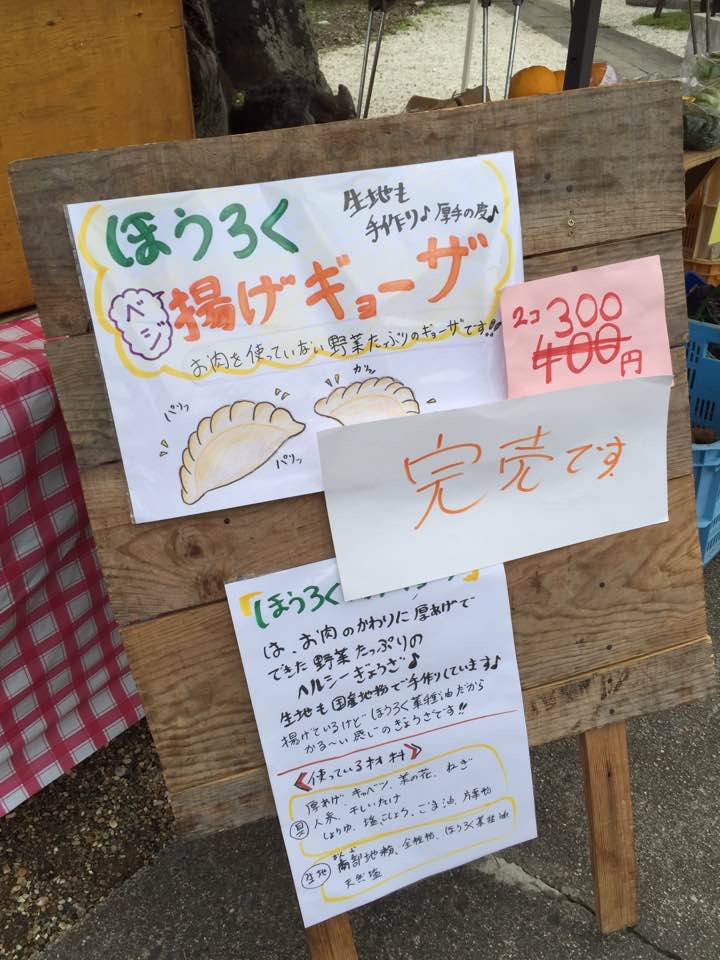 ほうろく
生地も
手作り♪厚手の皮♪
ベジ
揚げギョーザ
お肉を使っていない野菜たっぷりのギョーザです!!
パリッ
パリッ
カリッ
2コ300
400円
完売です
「ほうろく
は、お肉のかわりに厚あげで
できた野菜たっぷりの
ヘルシーぎょうざ♪
生地も国産地粉で手作りしています♪
揚げているけどほうろく菜種油だから
かる〜い感じのぎょうざです!!
《使っている材料》
具
厚あげ、キャベツ、菜の花、ねぎ
人参、干しいたけ
しょうゆ、塩、こしょう、ごま油、片栗粉
生地
南部地粉、全粒粉、ほうろく菜種油
天然塩